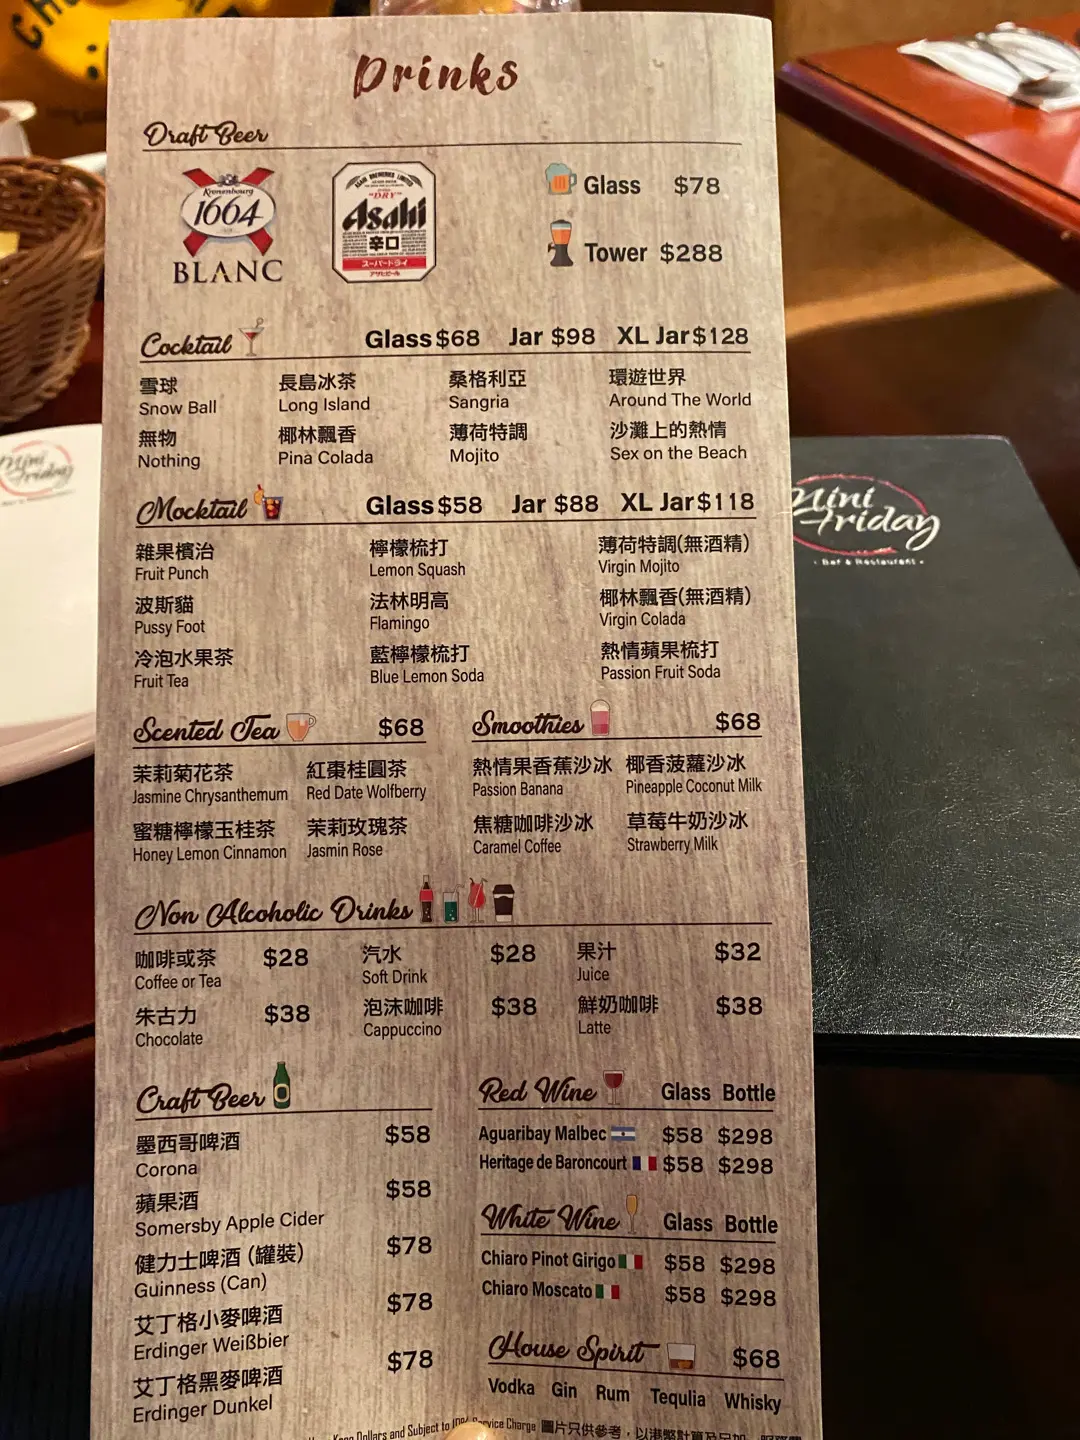 Drinks
Draft Beer
Kronenbourg
1664
BLANC
ASAHI BREWERIES LIMITED
"DRY"
Asahi
辛口
スーパードライ
アサヒビール
Glass $78
Tower $288
Cocktail Glass $68 Jar $98 XL Jar $128
雪球 長島冰茶 桑格利亞 環遊世界
Snow Ball Long Island Sangria Around The World
無物 椰林飄香 薄荷特調 沙灘上的熱情
Nothing Pina Colada Mojito Sex on the Beach
Mocktail Glass $58 Jar $88 XL Jar $118
雜果檳治 檸檬梳打 薄荷特調(無酒精)
Fruit Punch Lemon Squash Virgin Mojito
波斯貓 法林明高 椰林飄香(無酒精)
Pussy Foot Flamingo Virgin Colada
冷泡水果茶 藍檸檬梳打 熱情蘋果梳打
Fruit Tea Blue Lemon Soda Passion Fruit Soda
Scented Tea $68
茉莉菊花茶 紅棗桂圓茶
Jasmine Chrysanthemum Red Date Wolfberry
蜜糖檸檬玉桂茶 茉莉玫瑰茶
Honey Lemon Cinnamon Jasmin Rose
Smoothies $68
熱情果香蕉沙冰 椰香菠蘿沙冰
Passion Banana Pineapple Coconut Milk
焦糖咖啡沙冰 草莓牛奶沙冰
Caramel Coffee Strawberry Milk
Non Alcoholic Drinks
咖啡或茶 $28 汽水 $28 果汁 $32
Coffee or Tea Soft Drink Juice
朱古力 $38 泡沫咖啡 $38 鮮奶咖啡 $38
Chocolate Cappuccino Latte
Craft Beer
墨西哥啤酒 $58
Corona
蘋果酒 $58
Somersby Apple Cider
健力士啤酒 (罐裝) $78
Guinness (Can)
艾丁格小麥啤酒 $78
Erdinger Weißbier
艾丁格黑麥啤酒 $78
Erdinger Dunkel
Red Wine Glass Bottle
Aguaribay Malbec $58 $298
Heritage de Baroncourt $58 $298
White Wine Glass Bottle
Chiaro Pinot Girigo $58 $298
Chiaro Moscato $58 $298
House Spirit $68
Vodka Gin Rum Tequlia Whisky
Kong Dollars and Subject to 10% Service Charge 圖片只供參考，以港幣計算及另加
Nini
Friday
- Bar & Restaurant -
Nini
Friday